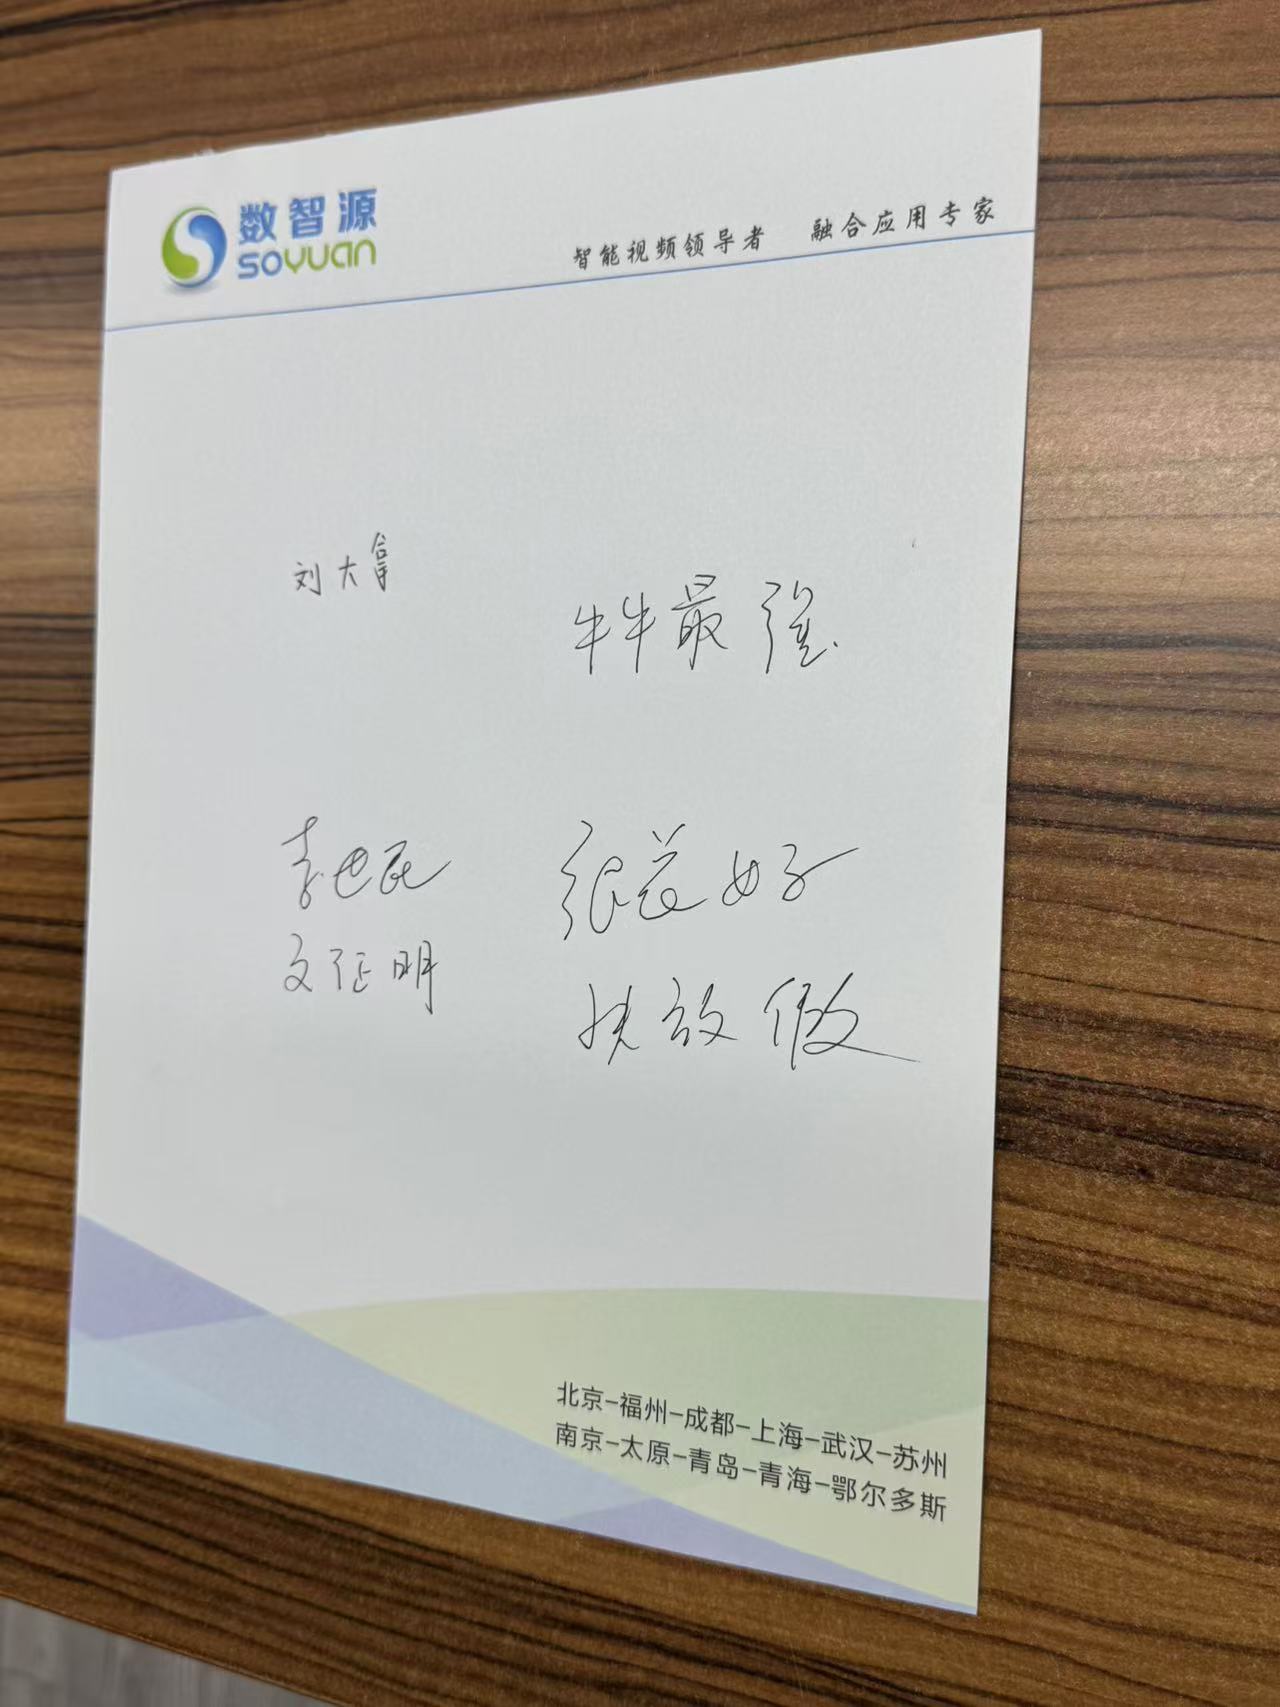 数智源
SOYUAN
智能视频领导者 融合应用专家
刘大拿
牛牛最强
李世民
张芸好
文征明
快放假
北京-福州-成都-上海-武汉-苏州
南京-太原-青岛-青海-鄂尔多斯